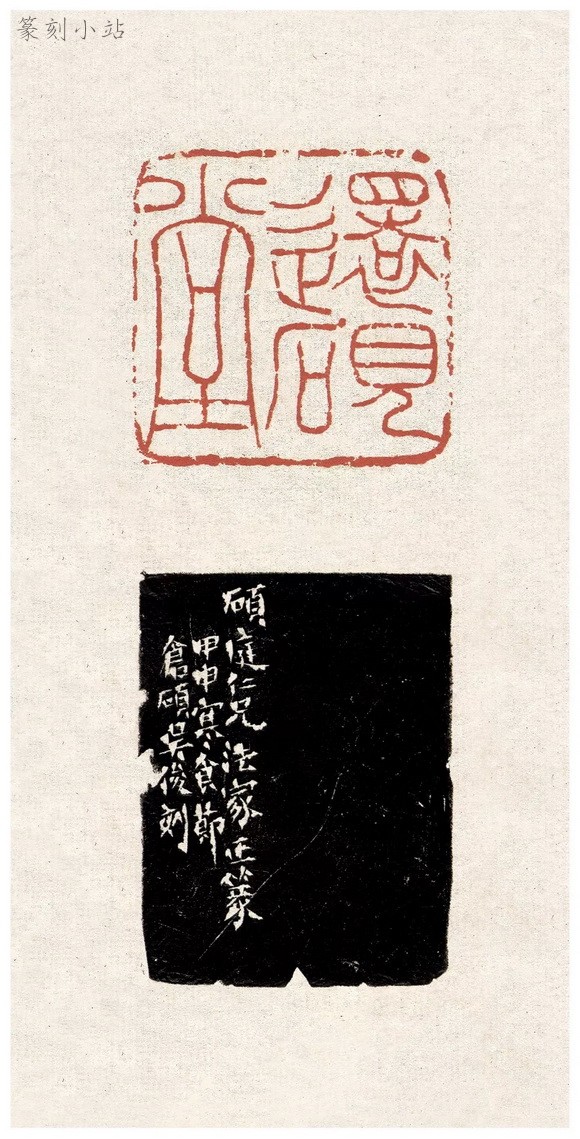 篆刻小站
還硯
堂
碩庭仁兄法家正篆
甲申寒食節
倉碩吳俊刻